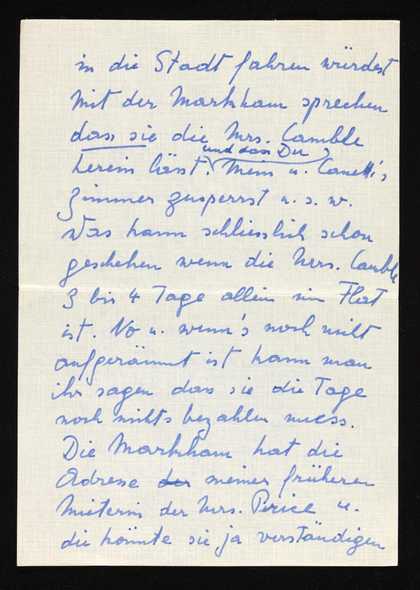 in die Stadt fahren würdest
mit der Markham sprechen
dass sie die Mrs. Camble
und dass Du
herein lässt. Mein u. Canetti's
Zimmer zusperrst u. s. w.
Was kann schliesslich schon
geschehen wenn die Mrs. Camble
3 bis 4 Tage allein im Flat
ist. No u. wenn's noch nicht
aufgeräumt ist kann man
ihr sagen dass sie die Tage
noch nichts bezahlen muess.
Die Markham hat die
Adrese der meiner früheren
Mieterin der Mrs.Perice u.
die könnte sie ja verständigen